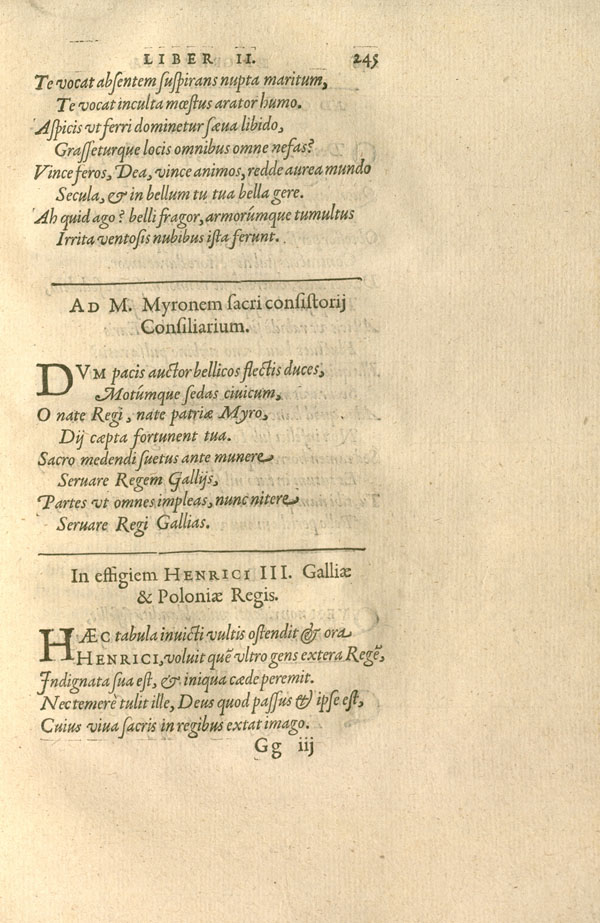 LIBER II. 245
Te vocat absentem suspirans nupta maritum,
Te vocat inculta mœstus arator humo.
Aspicis vt ferri dominetur sæua libido,
Grasseturque locis omnibus omne nefas?
Vince feros, Dea, vince animos, redde aurea mundo
Secula, & in bellum tu tua bella gere.
Ah quid ago? belli fragor, armorúmque tumultus
Irrita ventosis nubibus ista ferunt.
AD M. Myronem sacri consistorij
Consiliarium.
DVM pacis auctor bellicos flectis duces,
Motúmque sedas ciuicum,
O nate Regi, nate patriæ Myro,
Dij cæpta fortunent tua.
Sacro medendi suetus ante munere
Seruare Regem Gallijs,
Partes vt omnes impleas, nunc nitere
Seruare Regi Gallias.
In effigiem HENRICI III. Galliæ
& Poloniæ Regis.
HÆC tabula inuicti vultis ostendit & ora
HENRICI, voluit quē vltro gens extera Regē,
Indignata sua est, & iniqua cæde peremit.
Nec temerè tulit ille, Deus quod passus & ipse est,
Cuius viua sacris in regibus extat imago.
Gg iij